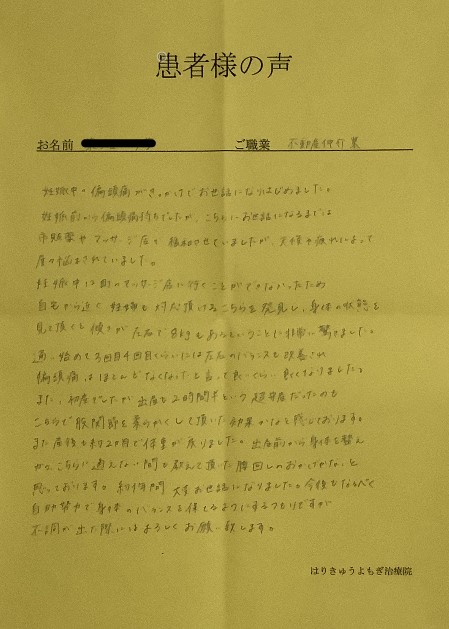 患者様の声
お名前 ご職業 不動産仲介業
妊娠中の偏頭痛がきっかけでお世話になりはじめました。
妊娠前から偏頭痛持ちでしたが、こちらにお世話になるまでは
市販薬やマッサージ店で緩和させていましたが、天候や疲れによって
度々悩まされていました。
妊娠中は町のマッサージ店に行くことができなかったため
自宅から近く妊婦も対応頂けるこちらを発見し、身体の状態を
見て頂くと傾きが左右で8kgもあるということに非常に驚きました。
通い始めて3回目4回目くらいには左右のバランスも改善され
偏頭痛はほとんどなくなったと言って良いくらい良くなりました。
また、初産でしたが出産も2時間半という超安産だったのも
こちらで股関節を柔らかくして頂いた効果かなと感じております。
また産後も約2か月で体重が戻りました。出産前から身体を整え
からこちらに通えない間も教えて頂いた腰回しのおかげかな、と
思っております。約1年間大変お世話になりました。今後もなるべく
自助努力で身体のバランスを保てるようにするつもりですが
不調が出た際にはよろしくお願い致します。
はりきゅうよもぎ治療院